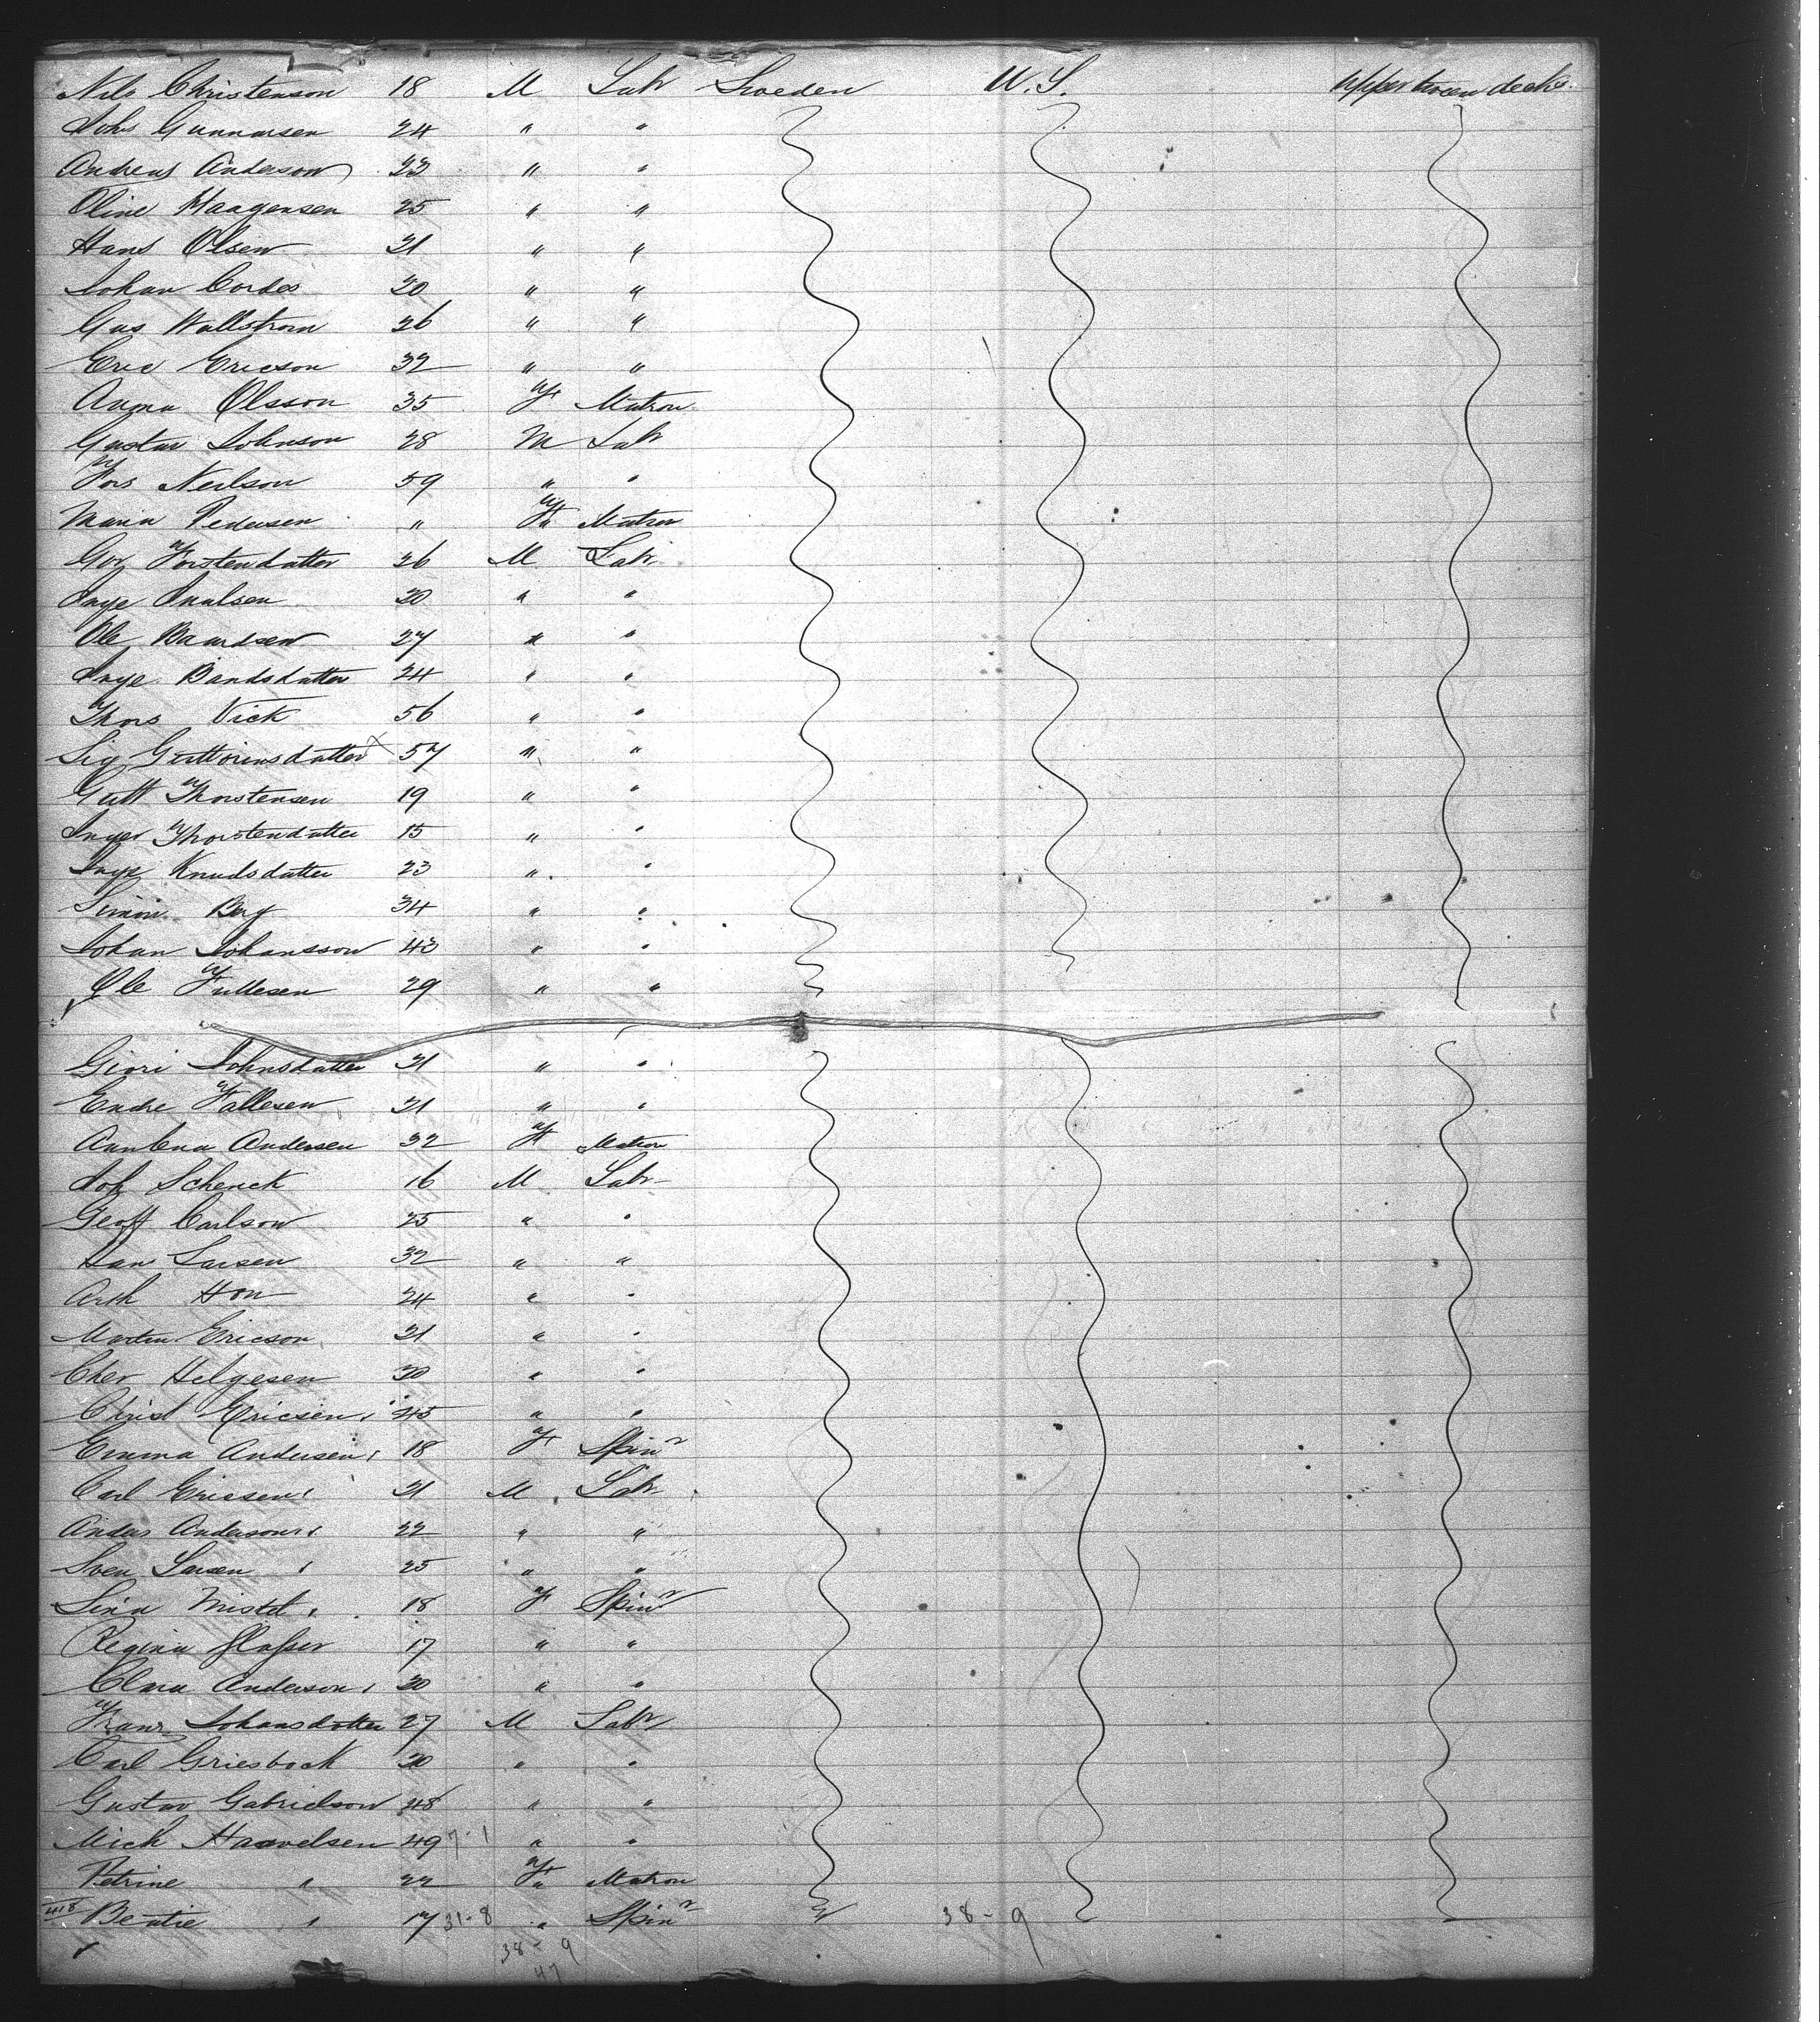 Nils Christenson 18 M Labr Sweden U.S. Upper tween decks
Johs Gunnarsen 24 " "
Andreas Anderson 23 " "
Oline Haagensen 25 " "
Hans Olsen 21 " "
Johan Cordes 20 " "
Gus Wallstrom 26 " "
Eric Ericson 32 " "
Anna Olsson 35 F Matron
Gustav Johnson 28 M Labr
Fors Neilson 59 " "
Maria Pedersen " F Matron
Gor Forstendatter 26 M Labr
Inge Paulsen 20 " "
Ole Baardsen 27 " "
Inge Bandsdatter 24 " "
Thors Vick 56 " "
Sig Guttormsdatter 57 " "
Gutt Thorstensen 19 " "
Inger Thorstendatter 15 " "
Inge Knudsdatter 23 " "
Simon Berg 34 " "
Johan Johansson 43 " "
Ole Fullesen 29 " "
Giori Johnsdatter 21 " "
Endre Fallesen 21 " "
Andersen 32 F Matron
Joh Schenck 16 M Labr
Geoff Carlson 25 " "
Hans Larsen 32 " "
Arth Hon 24 " "
Martin Ericson 21 " "
Cher Helgesen 30 " "
Christ Ericsen 45 " "
Emma Andersen 18 F Spinr
Carl Ericsen 21 M Labr
Anders Anderson 22 " "
Sven Larsen 25 " "
Lina Mistel 18 F Spinr
Regina Glasser 17 " "
Clara Anderson 20 " "
Franz Johansdotter 27 M Labr
Carl Griesbock 20 " "
Gustav Gabrielson 48 " "
Mich Haavelsen 49 7-1 " "
Petrine " 22 F Matron
418 Beatie " 17 31-8 " Spinr 38-9
38-9
47